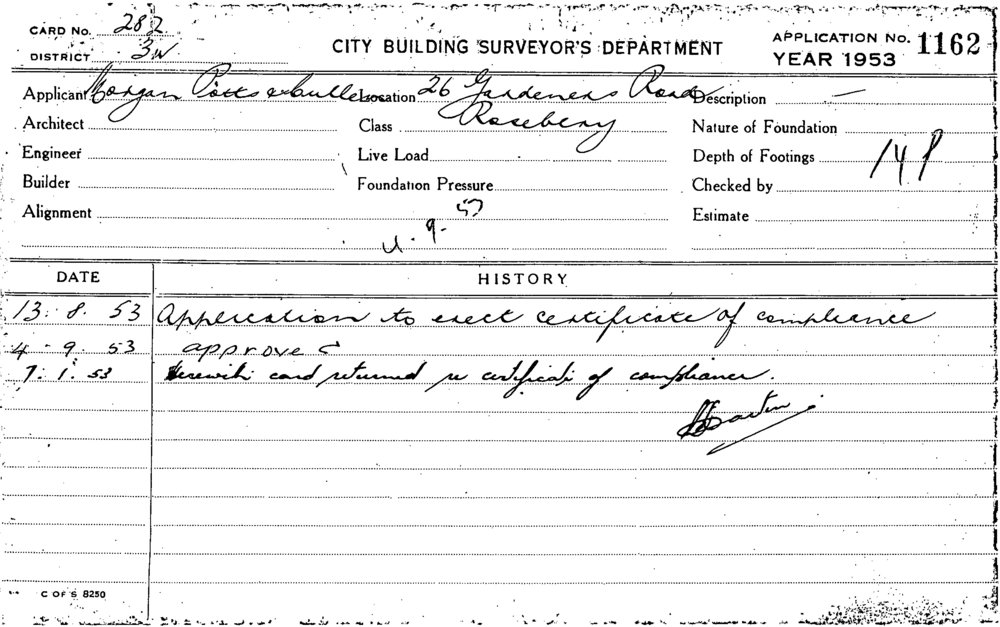 CARD No. 282
DISTRICT 3W
CITY BUILDING SURVEYOR'S DEPARTMENT
APPLICATION No. 1162
YEAR 1953
Applicant Morgan Potts & Cullen Location 26 Gardeners Road Description —
Rosebery
Architect Class Nature of Foundation
Engineer Live Load Depth of Footings 14 P
Builder Foundation Pressure Checked by
Alignment Estimate
9. 53
DATE HISTORY
13. 8. 53 Application to erect certificate of compliance
4 - 9. 53 approved
7. 1. 53 Herewith card returned re certificate of compliance.
C OF S 8250